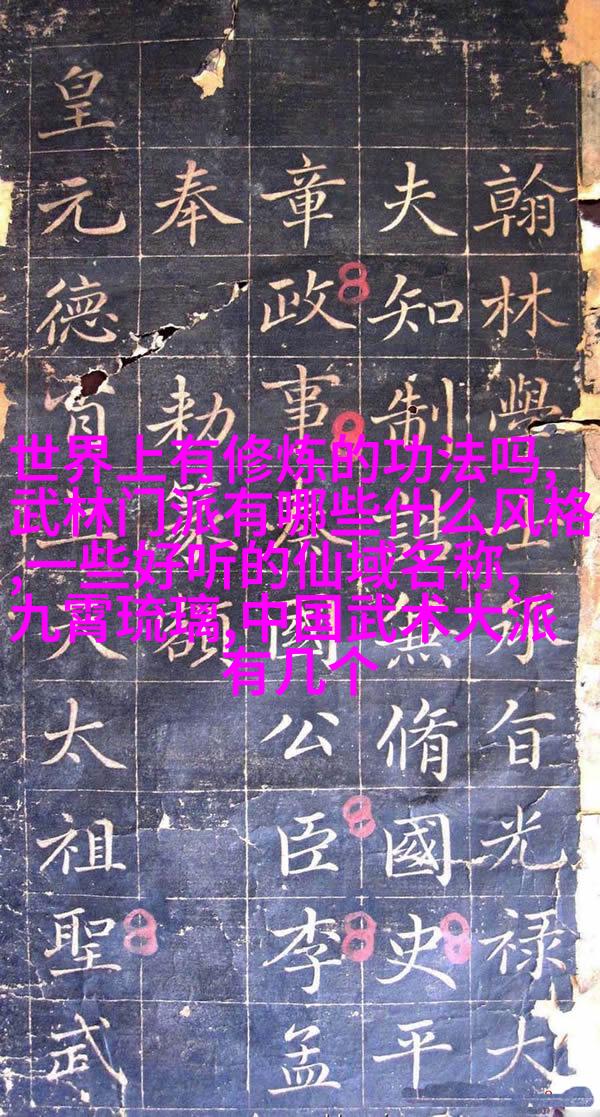 世界上有修炼的功法吗,
武林门派有哪些什么风格
,一些好听的仙域名称,
九霄琉璃,中国武术大派
有几个
翰林學士承旨光禄大
夫知制誥兼脩國史平
章政事秦國公臣李孟
奉勑篆額
皇元德天太祖聖武